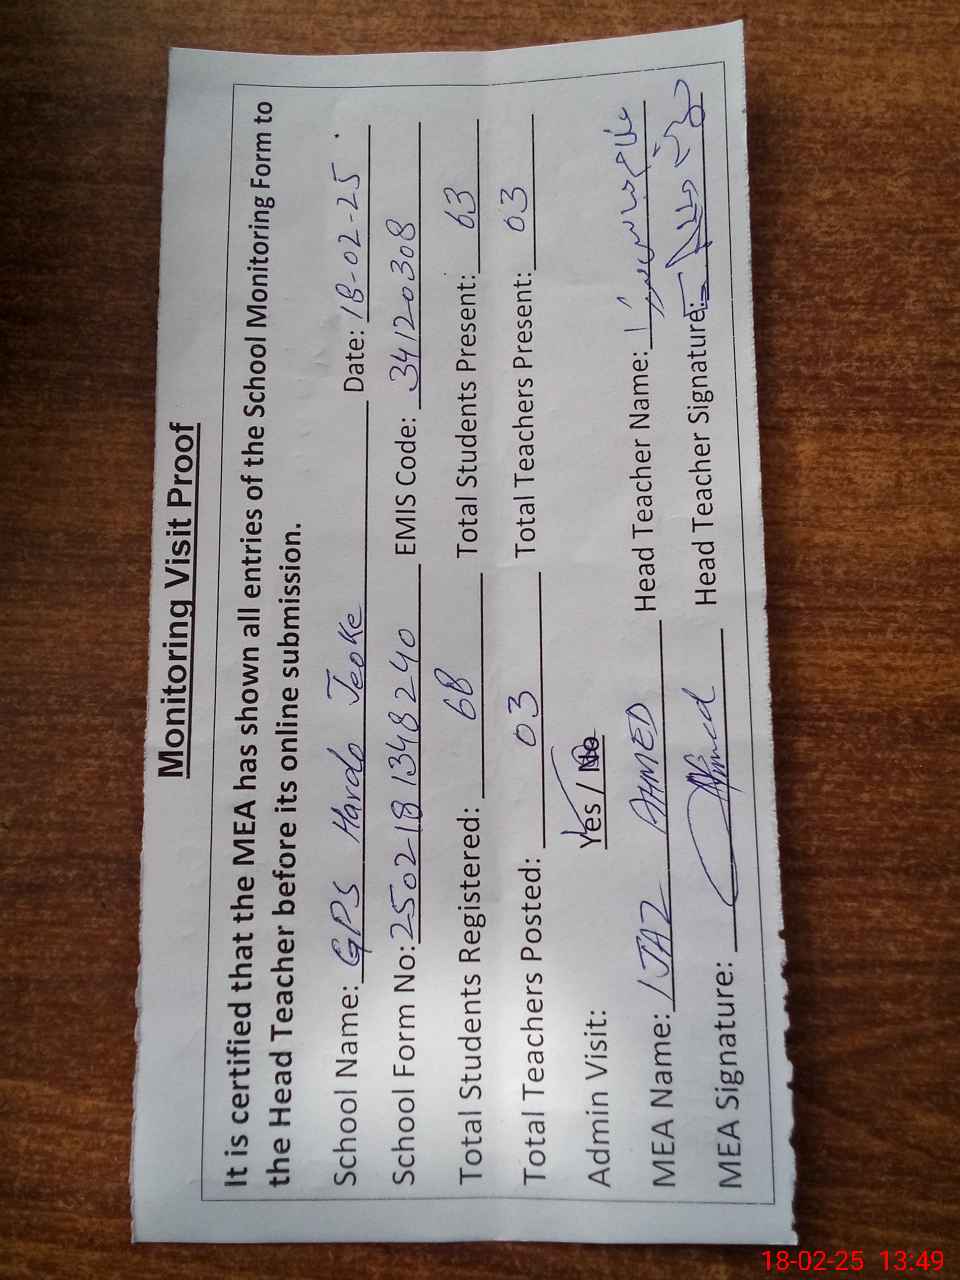 Monitoring Visit Proof
It is certified that the MEA has shown all entries of the School Monitoring Form to
the Head Teacher before its online submission.
School Name: GPS Hardo Jeoke Date: 18-02-25
School Form No: 2502181348240 EMIS Code: 34120308
Total Students Registered: 68 Total Students Present: 63
Total Teachers Posted: 03 Total Teachers Present: 03
Admin Visit: Yes / No
MEA Name: IJAZ AHMED Head Teacher Name:
MEA Signature: Ahmed Head Teacher Signature:
18-02-25 13:49